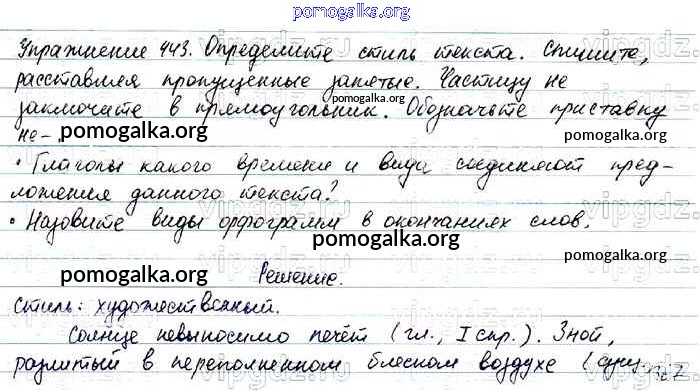 pomogalka.org
Упражнение 443. Определите стиль текста. Спишите,
расставляя пропущенные запятые. Частицу не
pomogalka.org
заключите в прямоугольник. Обозначьте приставку
не-. pomogalka.org
• Глаголы какого времени и вида соединяют пред-
ложения данного текста?
• Назовите виды орфограмм в окончаниях слов.
pomogalka.org
pomogalka.org
Решение.
Стиль: художественный.
Солнце невыносимо печёт (гл., I спр.). Зной,
разлитый в переполненном блеском воздухе